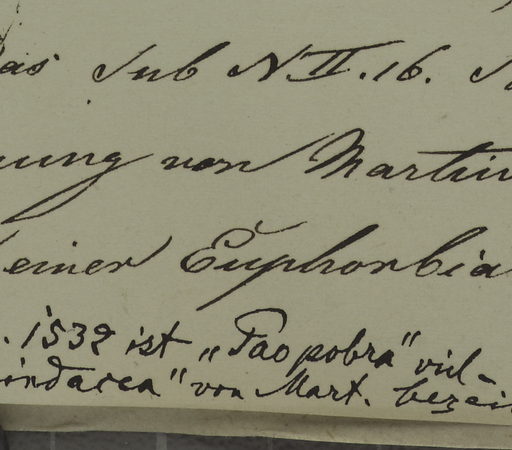 as sub N II.16.
nung von Martiu
einer Euphorbia
. 1532 ist „Paopobra" viel-
indacea" von Mart. bezei